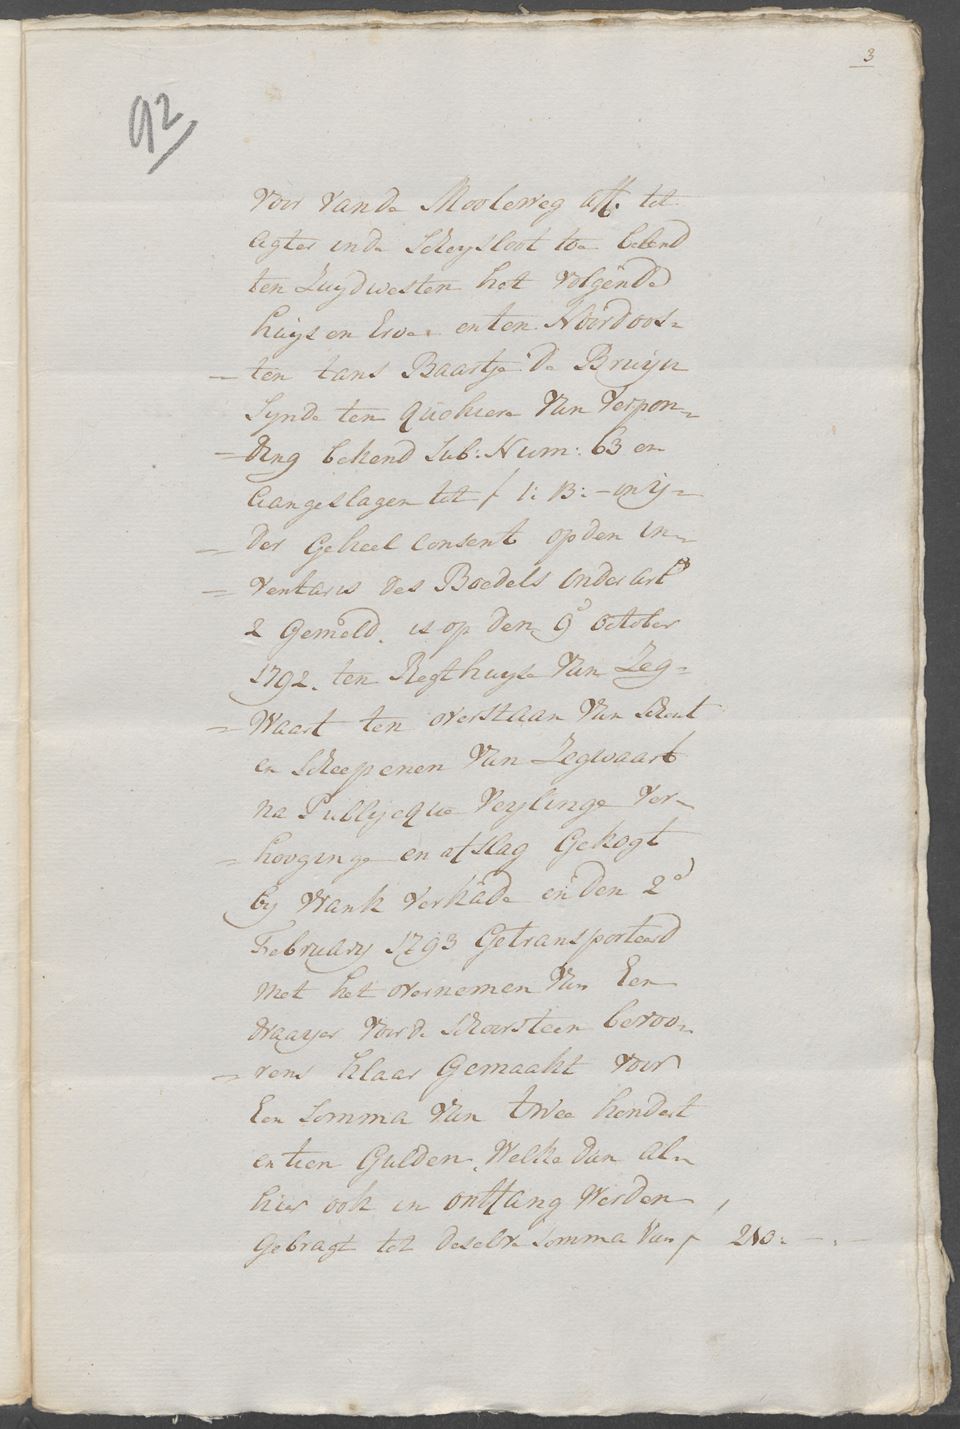 3
92
voor van de Mooleweg aff. tot
agter inde Scheysloot toe belend
ten Zuijdwesten het volgende
huijs en Erve: en ten Noordoos-
- ten tans Baartje de Bruijn
synde ten quohiere van verpon-
= ding bekend Sub: Num: 63 en
aangeslagen tot ƒ 1: 13: - in ij-
= der geheel consent op den in-
= ventaris des Boedels onder art
2 gemeld. is op den 9e october
1792. ten Regthuyse van Zeg-
= waart ten overstaan van schout
en scheepenen van Zegwaart
na Publijcque veylinge ver-
= hooginge en afslag gekogt
by Wank verkade en den 2e
February 1793 getransporteerd
met het overnemen van Een
draayer voor de schoorsteen bevoo-
= rens klaar gemaakt voor
Een somma van twee hondert
en tien gulden. welke dan al-
hier ook in ontfang werden
gebragt tot deselve somma van ƒ 210: - : -